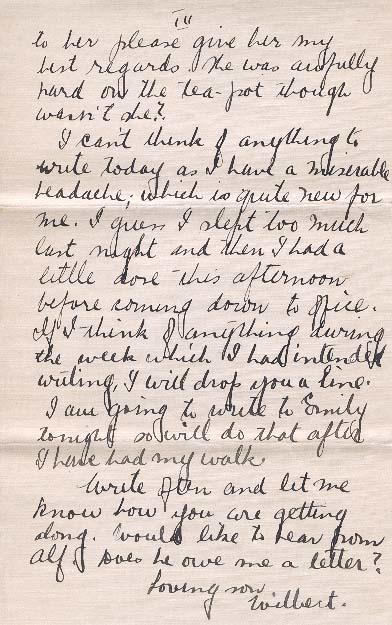 III
to her please give her my
best regards. She was awfully
hard on the tea-pot though
wasn't she?
I can't think of anything to
write today as I have a miserable
headache, which is quite new for
me. I guess I slept too much
last night and then I had a
little dose this afternoon
before coming down to office.
If I think of anything during
the week which I had intended
writing, I will drop you a line.
I am going to write to Emily
tonight so will do that after
I have had my walk.
Write often and let me
know how you are getting
along. Would like to hear from
Alf. Does he owe me a letter?
Loving son
Wilbert.